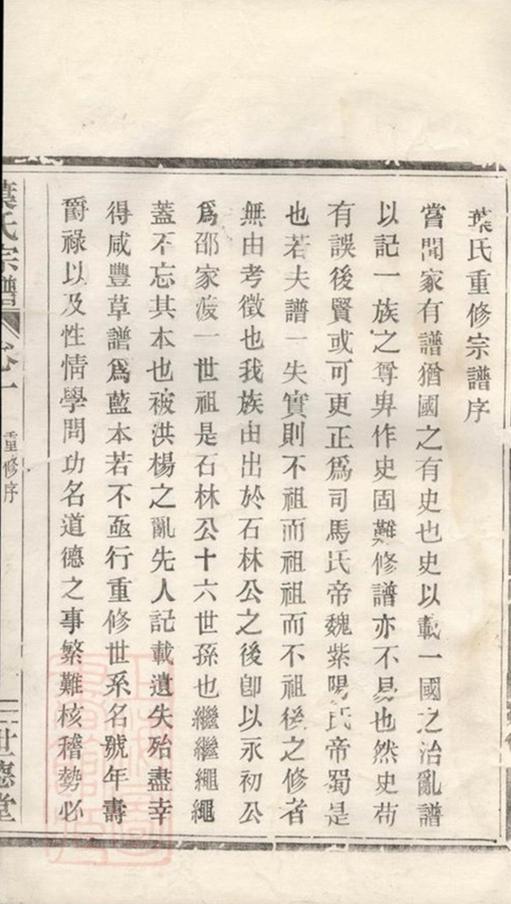 葉氏重修宗譜序
嘗聞家有譜猶國之有史也史以載一國之治亂譜
以記一族之尊卑作史固難修譜亦不易也然史苟
有誤後賢或可更正爲司馬氏帝魏紫陽氏帝蜀是
也若夫譜一失實則不祖而祖祖而不祖後之修者
無由考徵也我族由出於石林公之後卽以永初公
爲邵家渡一世祖是石林公十六世孫也繼繼繩繩
蓋不忘其本也被洪楊之亂先人記載遺失殆盡幸
得咸豐草譜爲藍本若不亟行重修世系名號年壽
爵祿以及性情學問功名道德之事繁難核稽勢必
葉氏宗譜 卷一 重修序 世德堂